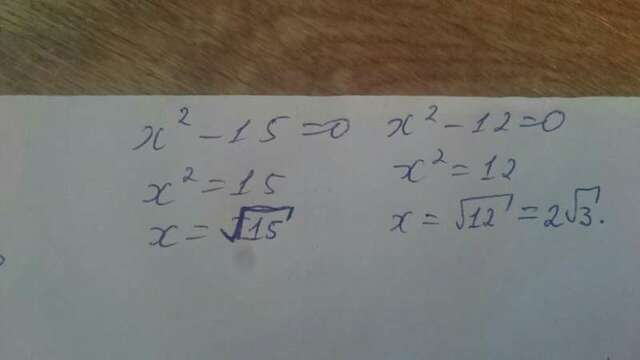 x² – 15 = 0
x² = 15
x = √15
x² – 12 = 0
x² = 12
x = √12 = 2√3.